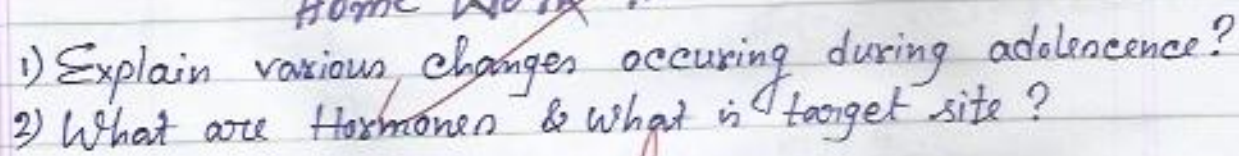 Home Work
1) Explain various changes occuring during adolencence?
2) What are Hormones & What is target site?